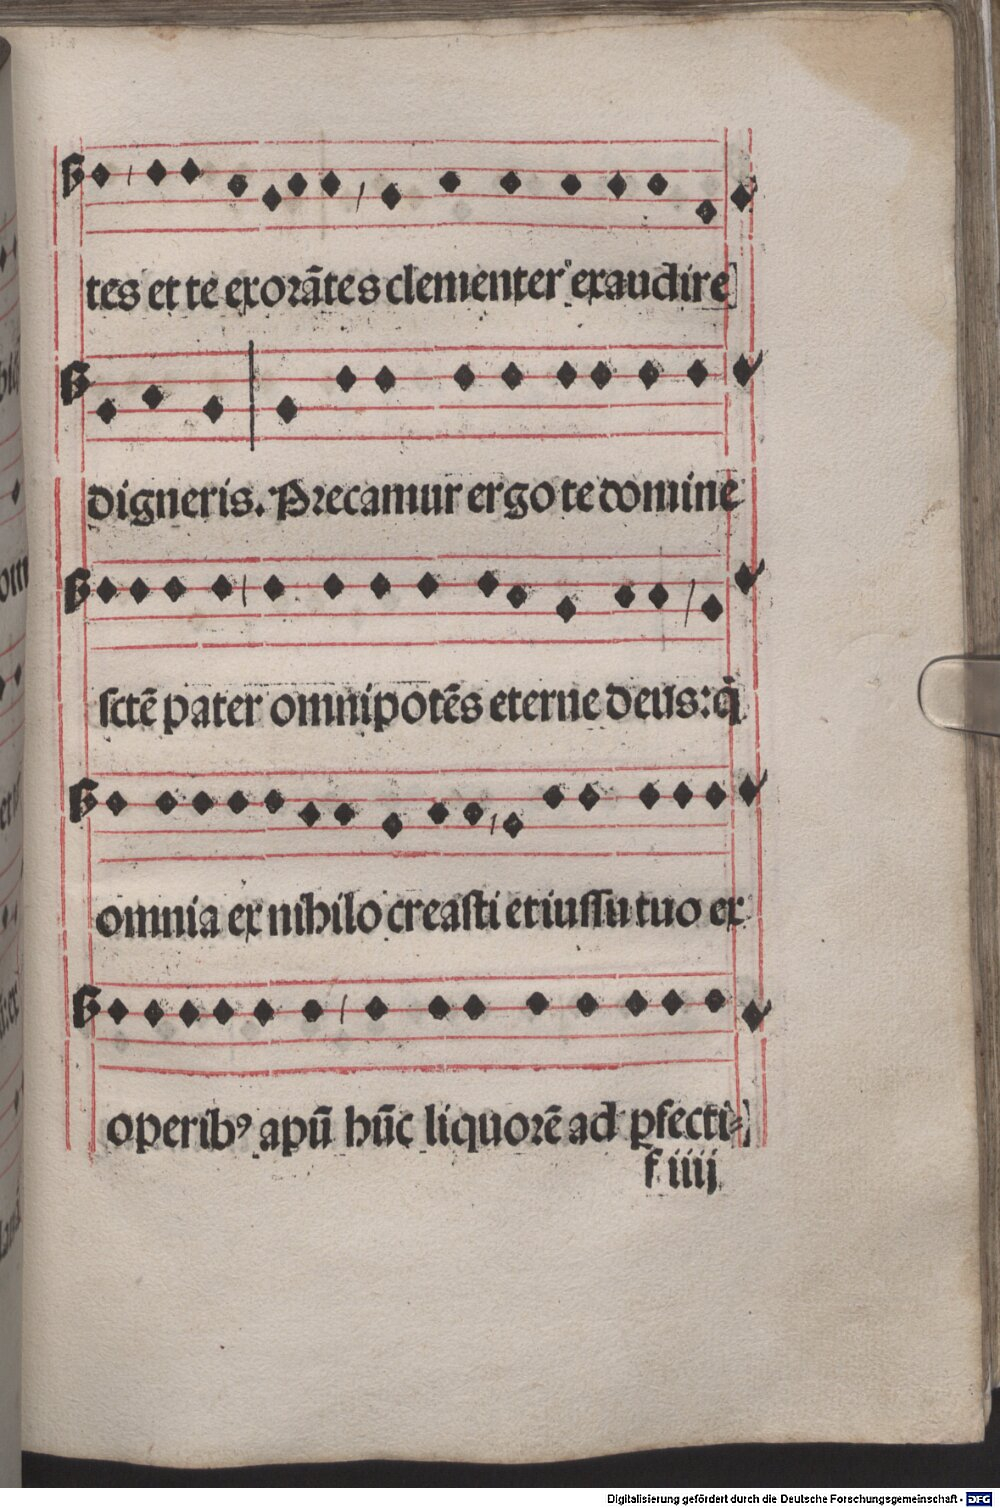 tes et te exorātes clementer exaudire
digneris. Precamur ergo te domine
sctē pater omnipotēs eterne deus: q̄
omnia ex nihilo creasti et iussu tuo ex
operibꝰ apū hūc liquorē ad pfecti⸗
f iiij
Digitalisierung gefördert durch die Deutsche Forschungsgemeinschaft - DFG